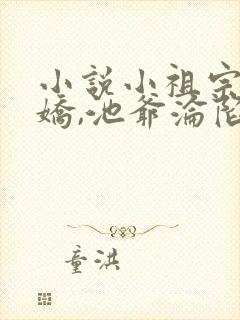 小説小祖宗
嬌,池爺淪陷
童洪